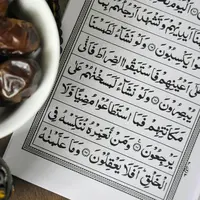 اَيْدِيْهِمْ وَتَشْهَدُ اَرْجُلُهُمْ
يَكْسِبُوْنَ ۝ وَلَوْ نَشَآءُ لَطَمَسْنَا
عَلٰٓى اَعْيُنِهِمْ فَاسْتَبَقُوا الصِّرَاطَ فَاَنّٰى
يُبْصِرُوْنَ ۝ وَلَوْ نَشَآءُ لَمَسَخْنٰهُمْ عَلٰى
مَكَانَتِهِمْ فَمَا اسْتَطَاعُوْا مُضِيًّا وَّلَا
يَرْجِعُوْنَ ۝ وَمَنْ نُّعَمِّرْهُ نُنَكِّسْهُ فِى
الْخَلْقِ ؕ اَفَلَا يَعْقِلُوْنَ ۝ وَمَا عَلَّمْنٰهُ